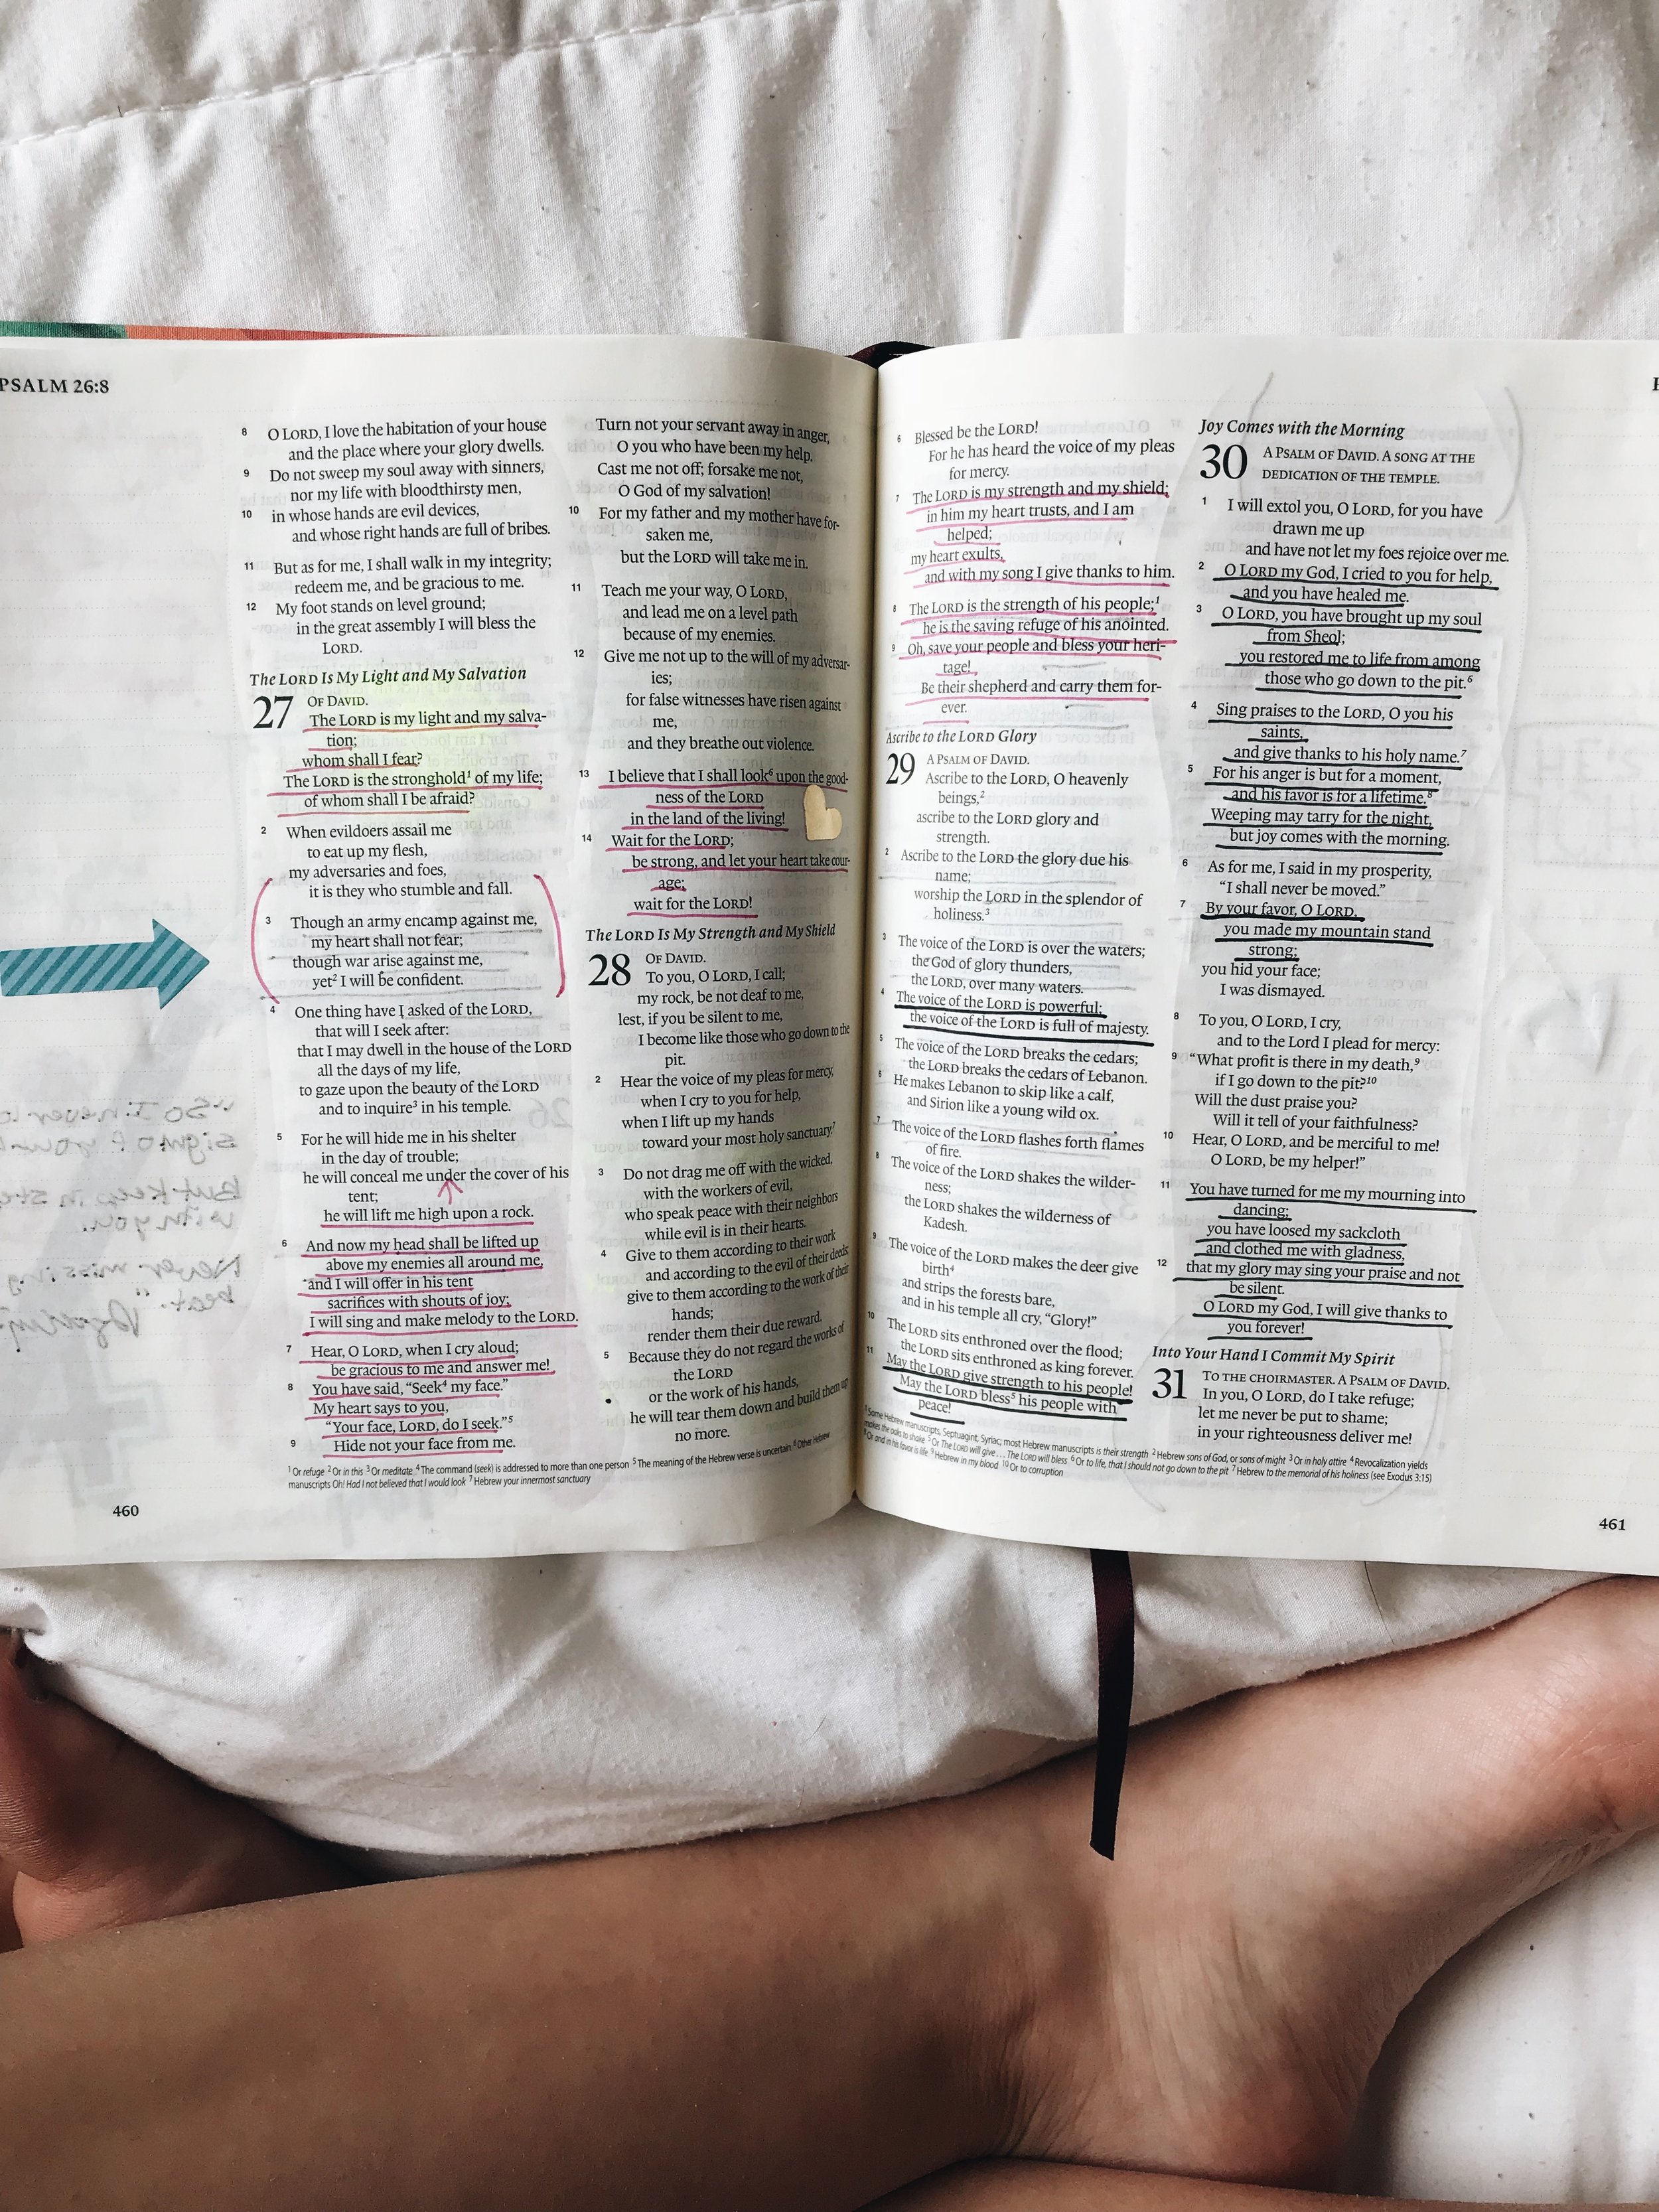 PSALM 26:8
8 O LORD, I love the habitation of your house
and the place where your glory dwells.
9 Do not sweep my soul away with sinners,
nor my life with bloodthirsty men,
10 in whose hands are evil devices,
and whose right hands are full of bribes.
11 But as for me, I shall walk in my integrity;
redeem me, and be gracious to me.
12 My foot stands on level ground;
in the great assembly I will bless the
LORD.
The LORD Is My Light and My Salvation
27 OF DAVID.
The LORD is my light and my salva-
tion;
whom shall I fear?
The LORD is the stronghold¹ of my life;
of whom shall I be afraid?
2 When evildoers assail me
to eat up my flesh,
my adversaries and foes,
it is they who stumble and fall.
3 Though an army encamp against me,
my heart shall not fear;
though war arise against me,
yet² I will be confident.
4 One thing have I asked of the LORD,
that will I seek after:
that I may dwell in the house of the LORD
all the days of my life,
to gaze upon the beauty of the LORD
and to inquire³ in his temple.
5 For he will hide me in his shelter
in the day of trouble;
he will conceal me under the cover of his
tent;
he will lift me high upon a rock.
6 And now my head shall be lifted up
above my enemies all around me,
and I will offer in his tent
sacrifices with shouts of joy;
I will sing and make melody to the LORD.
7 Hear, O LORD, when I cry aloud;
be gracious to me and answer me!
8 You have said, “Seek⁴ my face.”
My heart says to you,
“Your face, LORD, do I seek.”⁵
9 Hide not your face from me.
Turn not your servant away in anger,
O you who have been my help.
Cast me not off; forsake me not,
O God of my salvation!
10 For my father and my mother have for-
saken me,
but the LORD will take me in.
11 Teach me your way, O LORD,
and lead me on a level path
because of my enemies.
12 Give me not up to the will of my adversar-
ies;
for false witnesses have risen against
me,
and they breathe out violence.
13 I believe that I shall look⁶ upon the good-
ness of the LORD
in the land of the living!
14 Wait for the LORD;
be strong, and let your heart take cour-
age;
wait for the LORD!
The LORD Is My Strength and My Shield
28 OF DAVID.
To you, O LORD, I call;
my rock, be not deaf to me,
lest, if you be silent to me,
I become like those who go down to the
pit.
2 Hear the voice of my pleas for mercy,
when I cry to you for help,
when I lift up my hands
toward your most holy sanctuary.⁷
3 Do not drag me off with the wicked,
with the workers of evil,
who speak peace with their neighbors
while evil is in their hearts.
4 Give to them according to their work
and according to the evil of their deeds;
give to them according to the work of their
hands;
render them their due reward.
5 Because they do not regard the works of
the LORD
or the work of his hands,
he will tear them down and build them up
no more.
¹ Or refuge ² Or in this ³ Or meditate ⁴ The command (seek) is addressed to more than one person ⁵ The meaning of the Hebrew verse is uncertain ⁶ Other Hebrew
manuscripts Oh! Had I not believed that I would look ⁷ Hebrew your innermost sanctuary
460
6 Blessed be the LORD!
For he has heard the voice of my pleas
for mercy.
7 The LORD is my strength and my shield;
in him my heart trusts, and I am
helped;
my heart exults,
and with my song I give thanks to him.
8 The LORD is the strength of his people;¹
he is the saving refuge of his anointed.
9 Oh, save your people and bless your heri-
tage!
Be their shepherd and carry them for-
ever.
Ascribe to the LORD Glory
29 A PSALM OF DAVID.
Ascribe to the LORD, O heavenly
beings,²
ascribe to the LORD glory and
strength.
2 Ascribe to the LORD the glory due his
name;
worship the LORD in the splendor of
holiness.³
3 The voice of the LORD is over the waters;
the God of glory thunders,
the LORD, over many waters.
4 The voice of the LORD is powerful;
the voice of the LORD is full of majesty.
5 The voice of the LORD breaks the cedars;
the LORD breaks the cedars of Lebanon.
6 He makes Lebanon to skip like a calf,
and Sirion like a young wild ox.
7 The voice of the LORD flashes forth flames
of fire.
8 The voice of the LORD shakes the wilder-
ness;
the LORD shakes the wilderness of
Kadesh.
9 The voice of the LORD makes the deer give
birth⁴
and strips the forests bare,
and in his temple all cry, “Glory!”
10 The LORD sits enthroned over the flood;
the LORD sits enthroned as king forever.
11 May the LORD give strength to his people!
May the LORD bless⁵ his people with
peace!
Joy Comes with the Morning
30 A PSALM OF DAVID. A SONG AT THE
DEDICATION OF THE TEMPLE.
1 I will extol you, O LORD, for you have
drawn me up
and have not let my foes rejoice over me.
2 O LORD my God, I cried to you for help,
and you have healed me.
3 O LORD, you have brought up my soul
from Sheol;
you restored me to life from among
those who go down to the pit.⁶
4 Sing praises to the LORD, O you his
saints,
and give thanks to his holy name.⁷
5 For his anger is but for a moment,
and his favor is for a lifetime.⁸
Weeping may tarry for the night,
but joy comes with the morning.
6 As for me, I said in my prosperity,
“I shall never be moved.”
7 By your favor, O LORD,
you made my mountain stand
strong;
you hid your face;
I was dismayed.
8 To you, O LORD, I cry,
and to the Lord I plead for mercy:
9 “What profit is there in my death,⁹
if I go down to the pit?¹⁰
Will the dust praise you?
Will it tell of your faithfulness?
10 Hear, O LORD, and be merciful to me!
O LORD, be my helper!”
11 You have turned for me my mourning into
dancing;
you have loosed my sackcloth
and clothed me with gladness,
12 that my glory may sing your praise and not
be silent.
O LORD my God, I will give thanks to
you forever!
Into Your Hand I Commit My Spirit
31 TO THE CHOIRMASTER. A PSALM OF DAVID.
In you, O LORD, do I take refuge;
let me never be put to shame;
in your righteousness deliver me!
¹ Some Hebrew manuscripts, Septuagint, Syriac; most Hebrew manuscripts is their strength ² Hebrew sons of God, or sons of might ³ Or in holy attire ⁴ Revocalization yields
makes the oaks to shake ⁵ Or The LORD will give . . . The LORD will bless ⁶ Or to life, that I should not go down to the pit ⁷ Hebrew to the memorial of his holiness (see Exodus 3:15)
⁸ Or and in his favor is life ⁹ Hebrew in my blood ¹⁰ Or to corruption
461